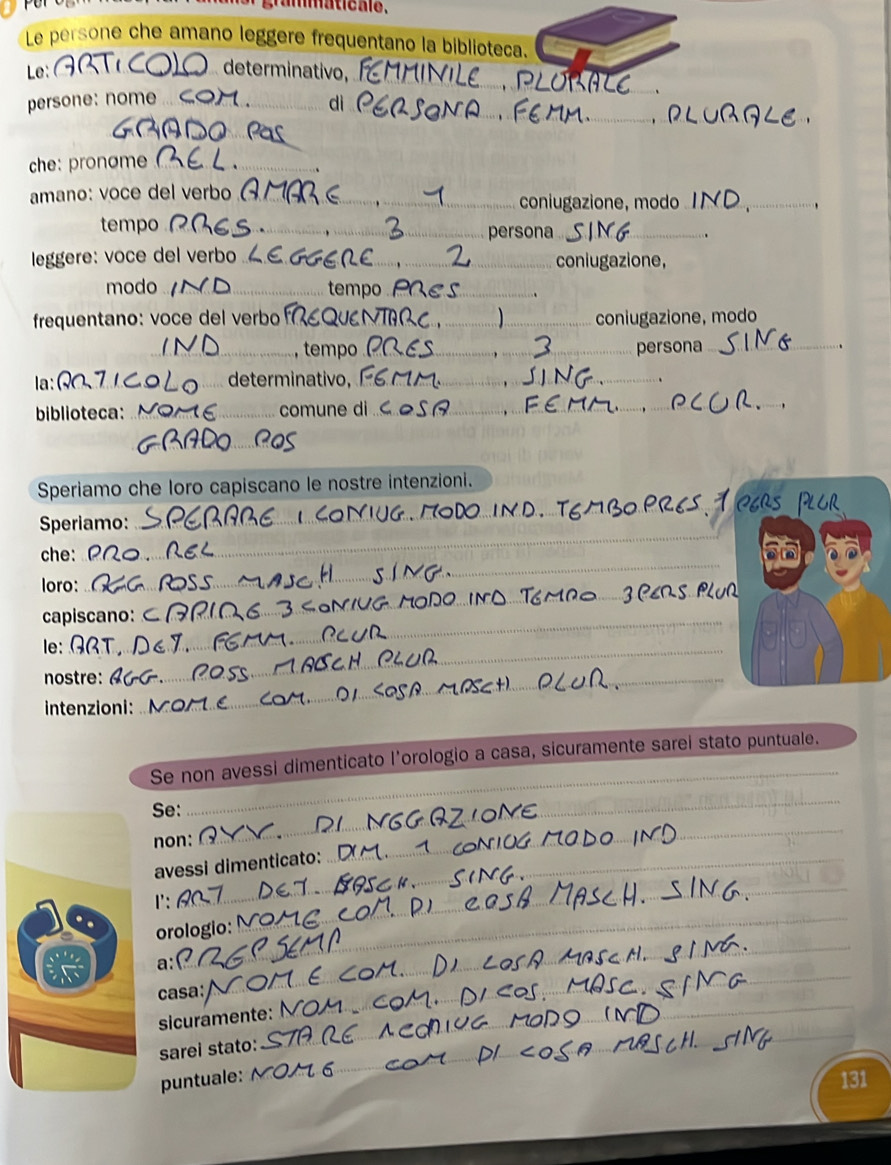 grammaticale.
Le persone che amano leggere frequentano la biblioteca.
Le: ARTICOLO determinativo, FEMMINILE, PLURALE.
persone: nome COM. di PERSONA, FEMM., PLURALE.
GRADO POS
che: pronome REL.
amano: voce del verbo AMARE, 1 coniugazione, modo IND,
tempo PRES., 3 persona SING.
leggere: voce del verbo LEGGERE, 2 coniugazione,
modo IND tempo PRES.
frequentano: voce del verbo FREQUENTARE, 1 coniugazione, modo
IND, tempo PRES, 3 persona SING.
la: ARTICOLO determinativo, FEMM., SING.
biblioteca: NOME comune di COSA, FEMM., PLUR.,
GRADO POS
Speriamo che loro capiscano le nostre intenzioni.
Speriamo: SPERARE 1 CONIUG. MODO IND. TEMBO PRES. 1 PERS PLUR
che: PRO. REL
loro: AGG POSS MASCH SING.
capiscano: CAPIRE 3 CONIUG MODO IND TEMPO 3 PERS PLUR
le: ART. DET. FEMM. PLUR
nostre: AGG. POSS MASCH PLUR
intenzioni: NOME COM. DI COSA MASCH PLUR.
Se non avessi dimenticato l'orologio a casa, sicuramente sarei stato puntuale.
Se:
non: AVV. DI NEGAZIONE
avessi dimenticato: DIM. 1 CONIUG MODO IND
l': ART DET. MASCH. SING.
orologio: NOME COM. DI COSA MASCH. SING.
a: PREP SEMP
casa: NOME COM. DI COSA MASCH. SING.
sicuramente: NOM. COM. DI COS. MASC. SING
sarei stato: STARE 1 CONIUG MODO IND
puntuale: NOME COM DI COSA MASCH. SING
131